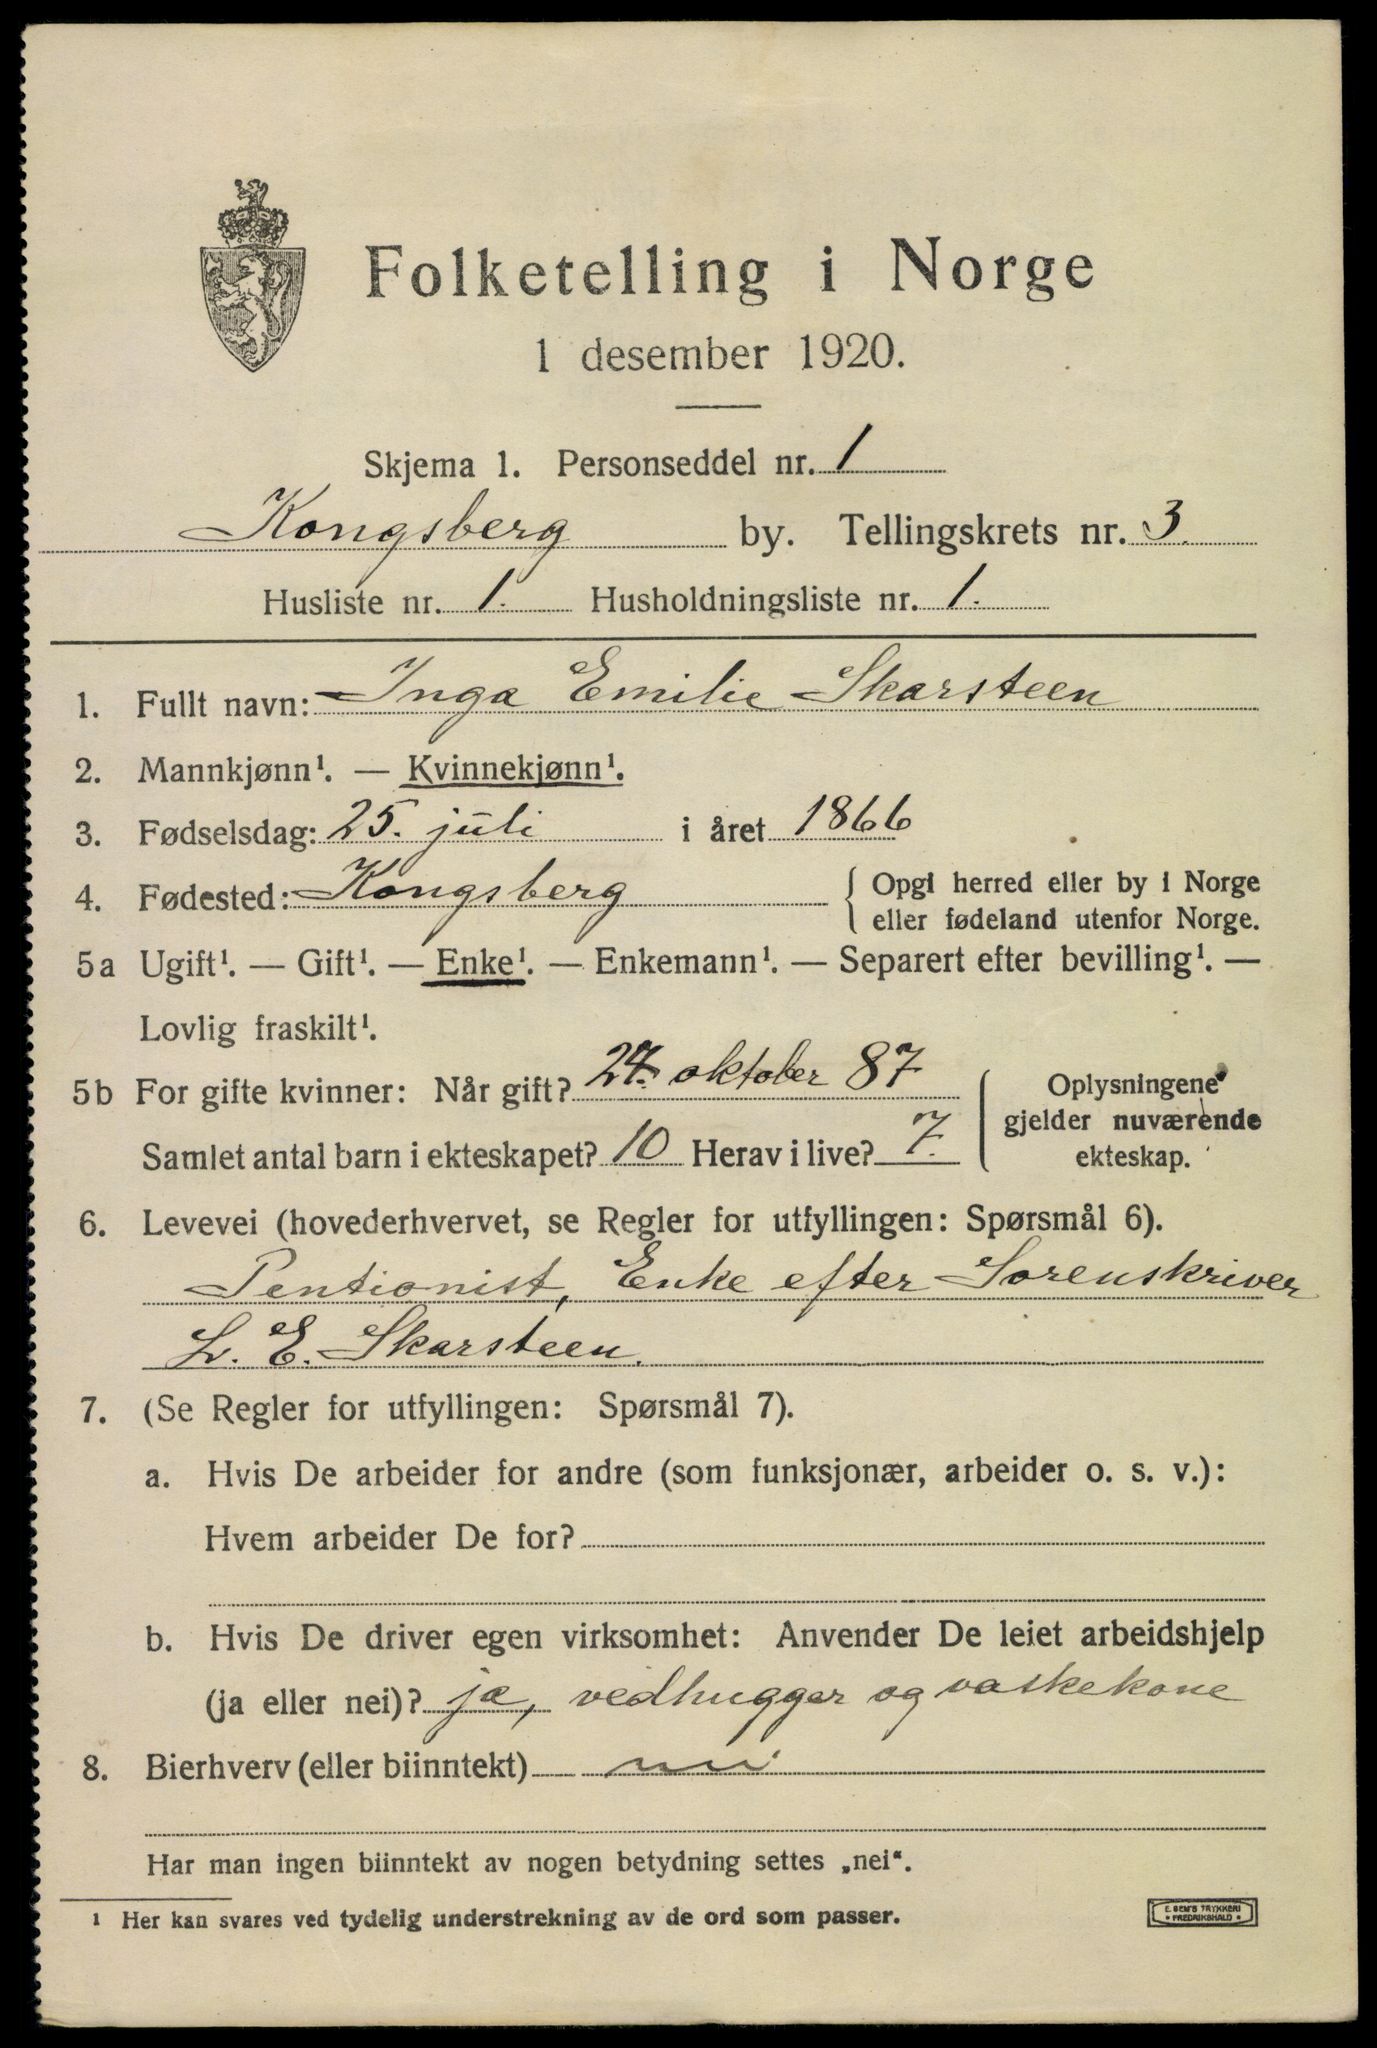 Folketelling i Norge
1 desember 1920.
Skjema 1. Personseddel nr. 1
Kongsberg by. Tellingskrets nr. 3.
Husliste nr. 1. Husholdningsliste nr. 1.
1. Fullt navn: Inga Emilie Skarsteen
2. Mannkjønn¹. — Kvinnekjønn¹.
3. Fødselsdag: 25. juli i året 1866
4. Fødested: Kongsberg { Opgi herred eller by i Norge
eller fødeland utenfor Norge.
5a Ugift¹. — Gift¹. — Enke¹. — Enkemann¹. — Separert efter bevilling¹. —
Lovlig fraskilt¹.
5b For gifte kvinner: Når gift? oktober 87 { Oplysningene
gjelder nuværende
Samlet antal barn i ekteskapet? 10 Herav i live? 7. ekteskap.
6. Levevei (hovederhvervet, se Regler for utfyllingen: Spørsmål 6).
Pentionist, Enke efter Sorenskriver
L. E. Skarsteen.
7. (Se Regler for utfyllingen: Spørsmål 7).
a. Hvis De arbeider for andre (som funksjonær, arbeider o. s. v.):
Hvem arbeider De for?
b. Hvis De driver egen virksomhet: Anvender De leiet arbeidshjelp
(ja eller nei)? ja, vedhugger og vaskekone
8. Bierhverv (eller biinntekt) nei
Har man ingen biinntekt av nogen betydning settes „nei“.
1 Her kan svares ved tydelig understrekning av de ord som passer.
E. SEM'S TRYKKERI
• FREDRIKSHALD •